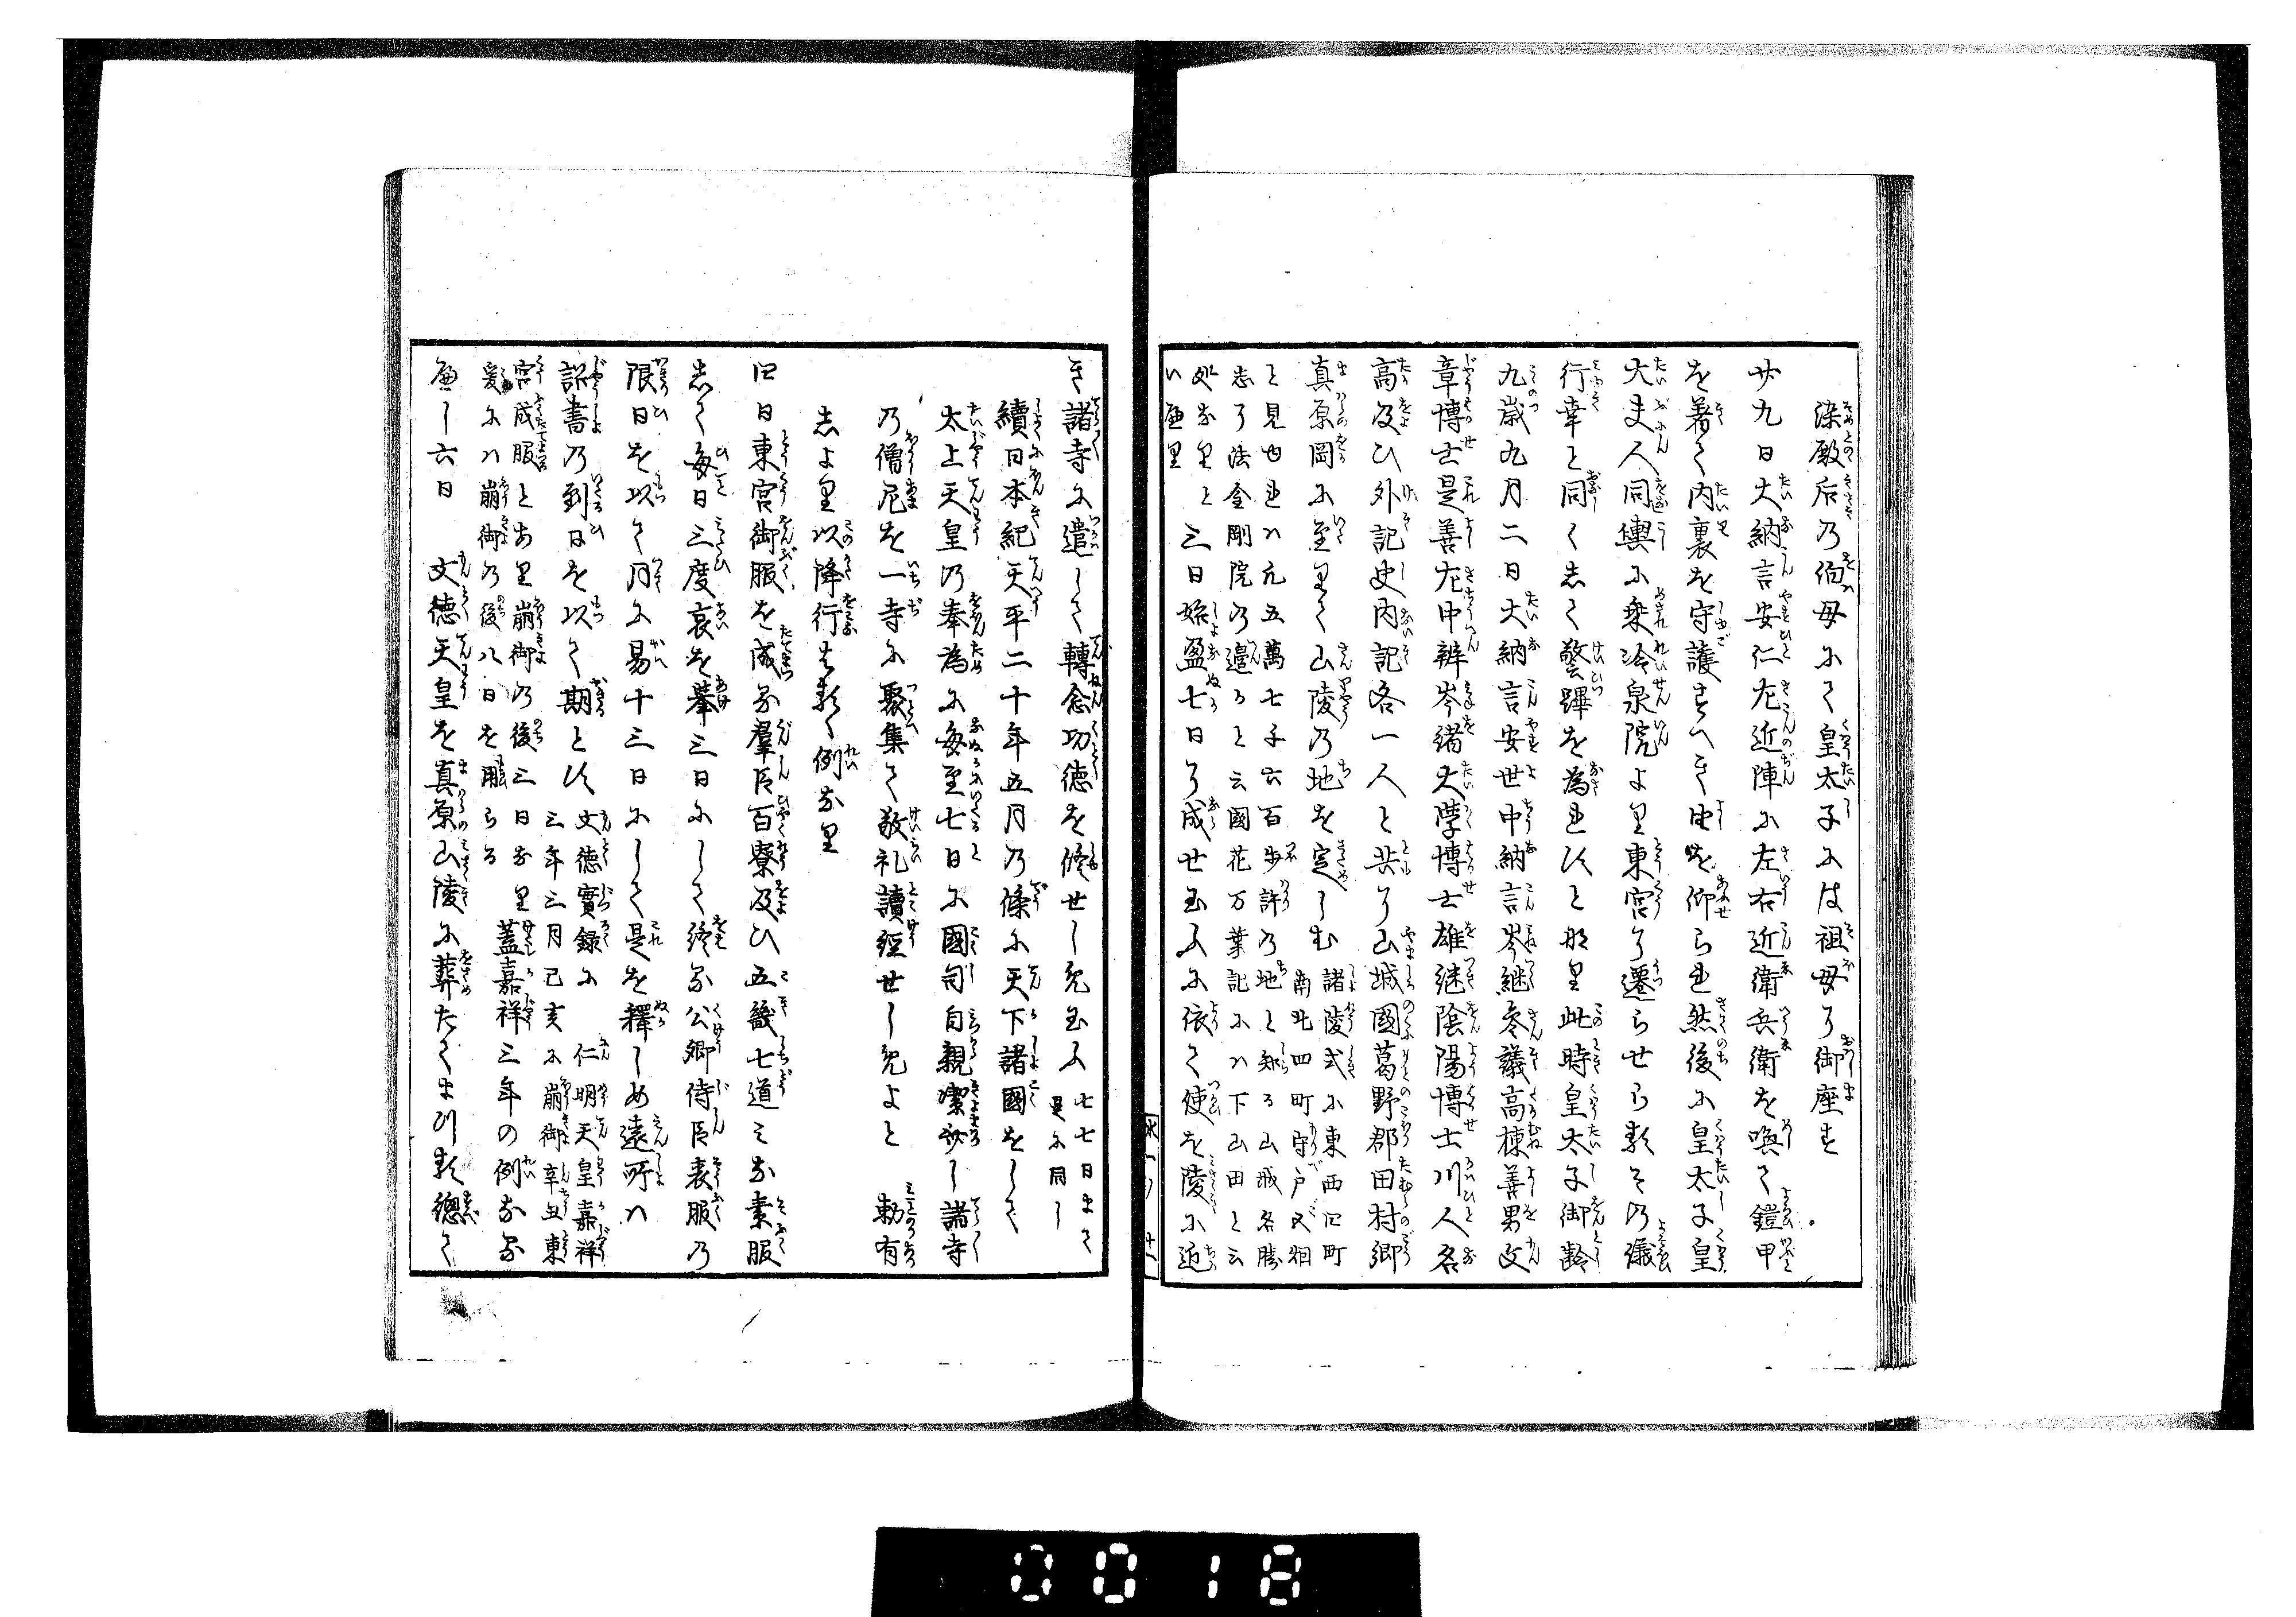 染殿后乃伯母にて皇太子には祖母に御座す
廿九日大納言安仁左近陣に左右近衛兵衛を喚て鎧甲
を著て内裏を守護すへき由を仰られ然後に皇太子皇
大夫人同輿に乗冷泉院より東宮に遷らせられその儀
行幸と同くして警蹕を為れすとなり此時皇太子御齢
九歳九月二日大納言安世中納言岑継参議高棟善男文
章博士是善左中辨岑緒大学博士雄継陰陽博士川人名
高及ひ外記史内記各一人と共に山城國葛野郡田村郷
真原岡に至りて山陵の地を定しむ
諸陵式に東西四町
南北四町守戸又烟
と見ゆれハ凡五萬七千六百歩許の地と知る山城名勝
志に法金剛院の邉なと云國花万葉記にハ下山田と云
処なりと三日始盈七日に成せ玉ふに依て使を陵に近
い通り
き諸寺に遣して轉念功徳を修せしめ玉ふ
七七日まて
是に同し
續日本紀天平二十年五月の條に天下諸國をして
太上天皇の奉為に毎至七日に國司自親潔斎し諸寺
の僧尼を一寺に聚集て敬礼讀経せしめよと　勅有
しより以降行はるゝ例なり
四日東宮御服を成な羣臣百寮及ひ五畿七道みな素服
して毎日三度哀を挙三日にして終る公卿侍臣表服の
限日を以て月に易十三日にして是を釋しめ遠所ハ
詔書の到日を以て期とす
文徳實録に　仁明天皇嘉祥
三年三月己亥に崩御辛丑東
宮成服とあり崩御の後三日なり　蓋嘉祥三年の例なる
爰にハ崩御の後八日を用らる
へし六日　文徳天皇を真原山陵に葬たてまつる總て